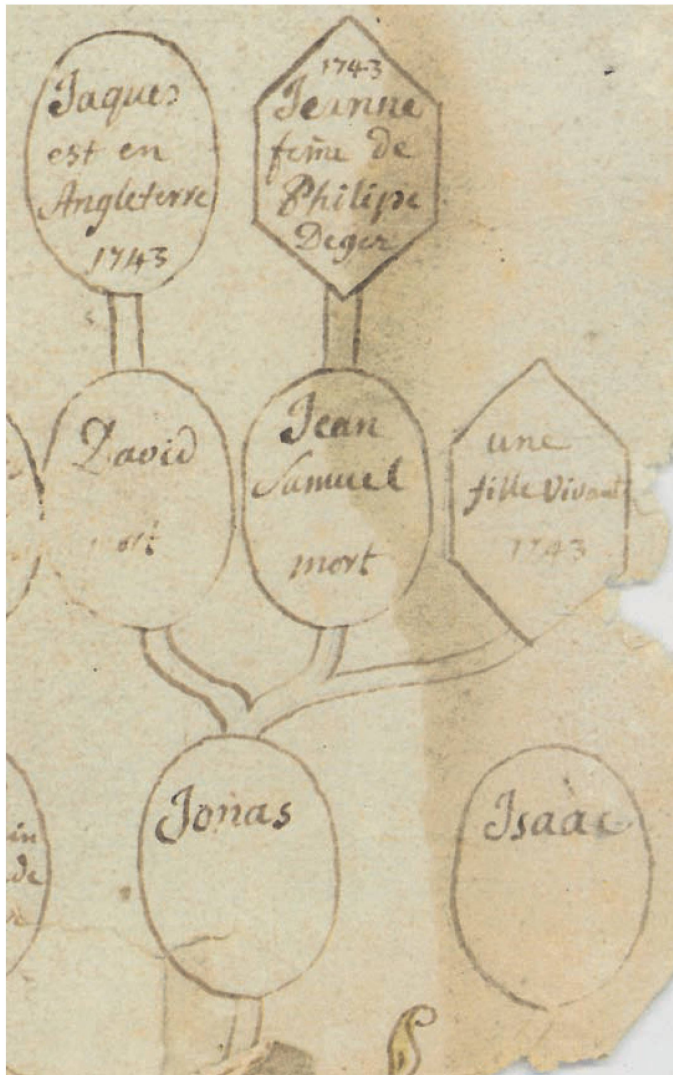 Jaques
est en
Angleterre
1743
1743
Jeanne
feme de
Philipe
Deger
David
mort
Jean
Samuel
mort
une
fille vivant
1743
Jonas
Isaac
in
de